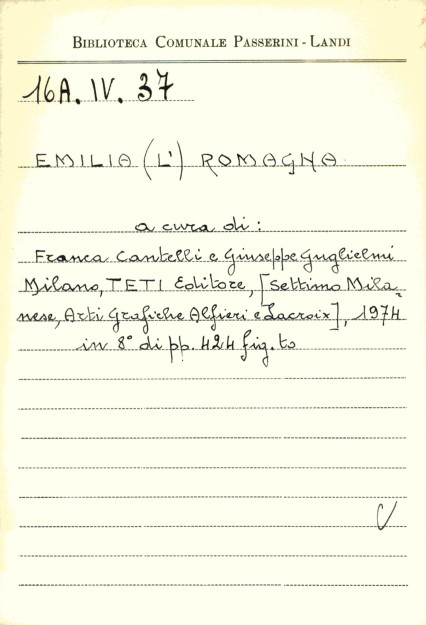 BIBLIOTECA COMUNALE PASSERINI - LANDI
16A. IV. 37
EMILIA (L') ROMAGNA
a cura di :
Franca Cantelli e Giuseppe Guglielmi
Milano, TETI Editore, [Settimo Mila=
nese, Arti Grafiche Alfieri e Lacroix], 1974
in 8° di pp. 424 fig.to